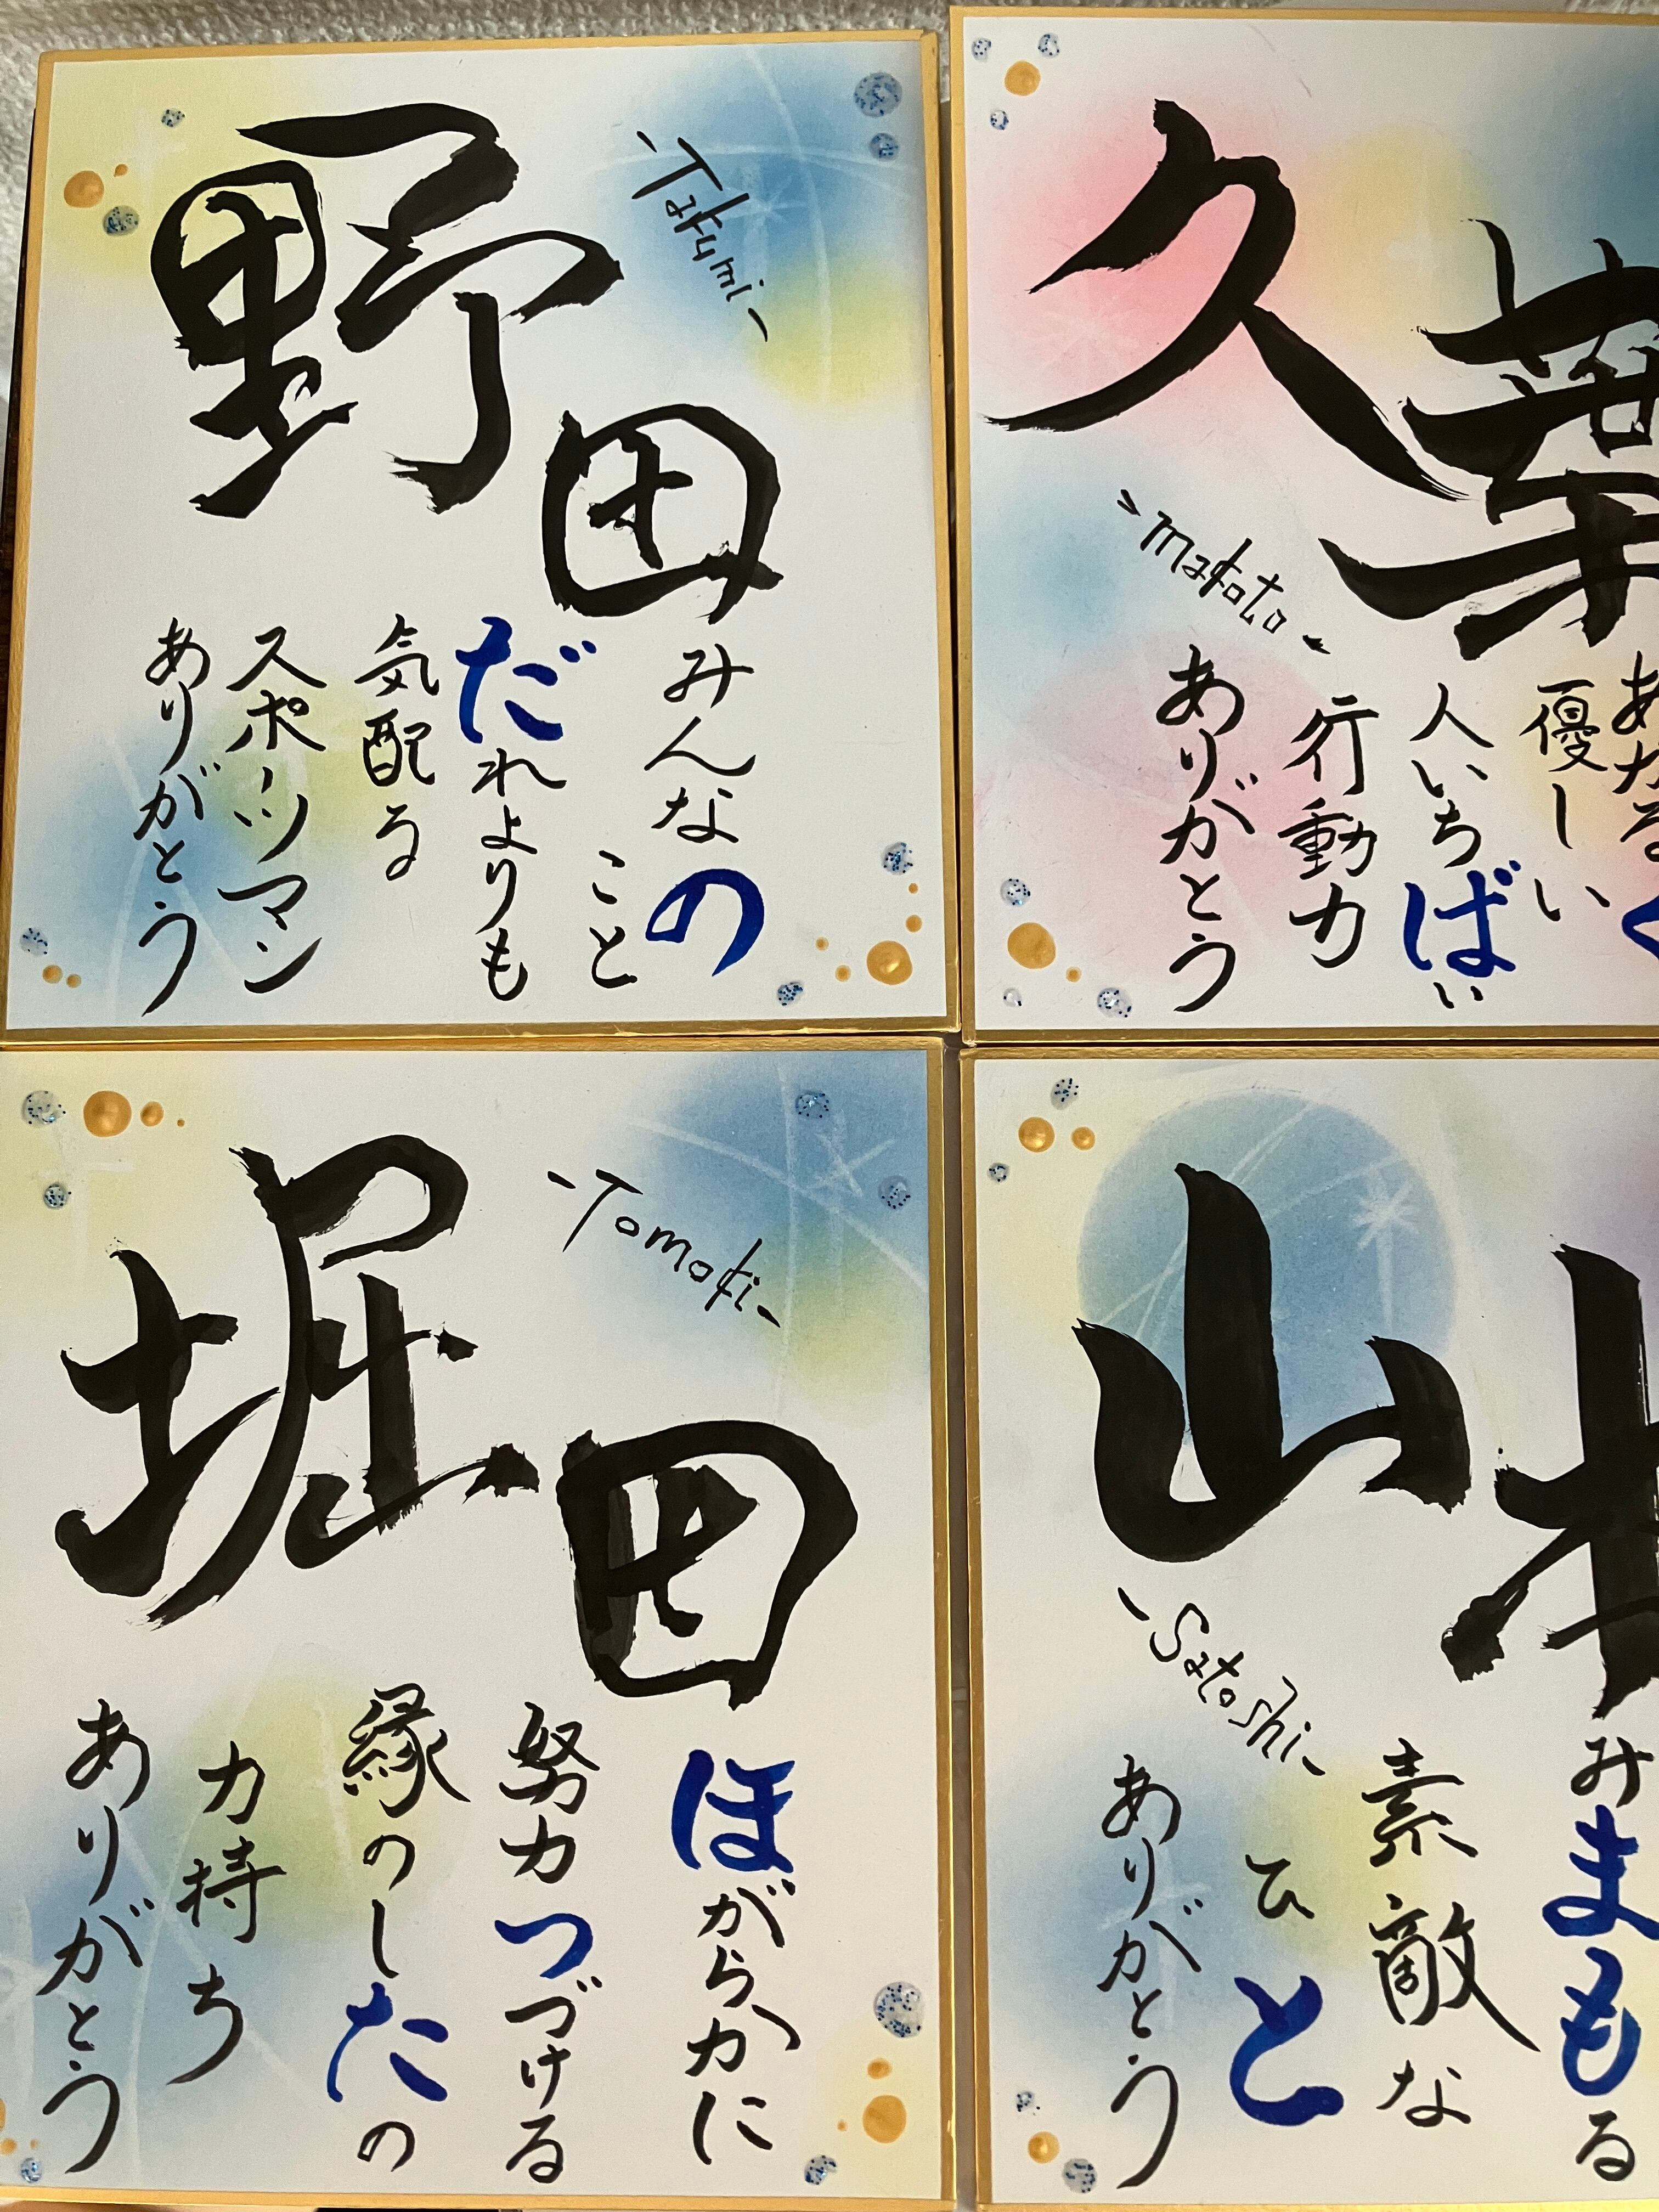 野田
-Takumi-
みんなの
こと
だれよりも
気配る
スポーツマン
ありがとう
久葉
-makoto-
優しい
人いちばい
行動力
ありがとう
堀田
-Tomoki-
ほがらかに
努力つづける
縁のしたの
力持ち
ありがとう
山
-Satoshi-
みまもる
素敵な
ひと
ありがとう